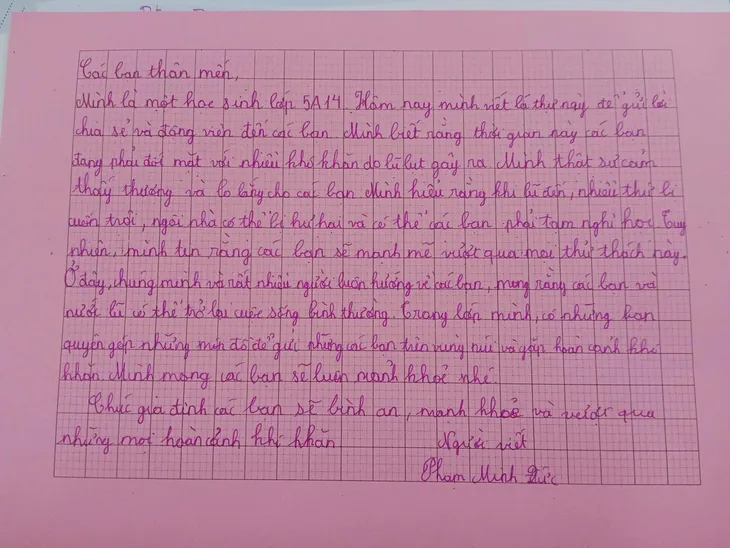 Các bạn thân mến,
Mình là một học sinh lớp 5A14. Hôm nay mình viết lá thư này để gửi lời
chia sẻ và động viên đến các bạn. Mình biết rằng thời gian này các bạn
đang phải đối mặt với nhiều khó khăn do lũ lụt gây ra. Mình thật sự cảm
thấy thương và lo lắng cho các bạn. Mình hiểu rằng khi lũ đến, nhiều thứ bị
cuốn trôi, ngôi nhà có thể bị hư hại và có thể các bạn phải tạm nghỉ học. Tuy
nhiên, mình tin rằng các bạn sẽ mạnh mẽ vượt qua mọi thử thách này.
Ở đây, chúng mình và rất nhiều người luôn hướng về các bạn, mong rằng các bạn và
nước lũ có thể trở lại cuộc sống bình thường. Trong lớp mình, có những bạn
quyên góp những món đồ để gửi những các bạn trên vùng núi và gặp hoàn cảnh khó
khăn. Mình mong các bạn sẽ luôn mạnh khoẻ nhé.
Chúc gia đình các bạn sẽ bình an, mạnh khoẻ và vượt qua
những mọi hoàn cảnh khí khăn
Người viết
Phạm Minh Đức